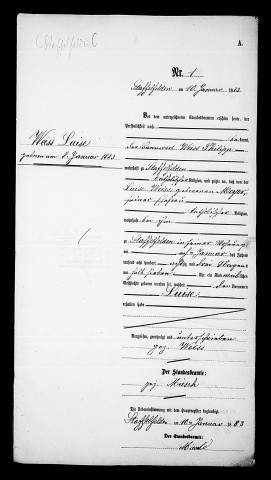 (Staffelfelden)
A.
Nr. 1
Staffelfelden am 10. Januar 1883
Vor dem unterzeichneten Standesbeamten erschien heute, der
Persönlichkeit nach
kannt,
der Weiss Philipp
Weiss Luise
geboren am 8. Januar 1883
wohnhaft zu Staffelfelden
katholischer Religion, und zeigte an, daß von der
Luise Weiss, geborenen Meyer,
seiner Ehefrau
katholischer Religion,
wohnhaft bei ihm
zu Staffelfelden in seiner Wohnung
am Januar des Jahres
tausend acht hundert achtzig und drei Vormittags
um halb sieben Uhr ein Kind weiblichen
Geschlechts geboren worden sei, welches den Vornamen
Luise
erhalten habe
Vorgelesen, genehmigt und unterschrieben
gez. Weiss
Der Standesbeamte:
gez. Miesch
Die Uebereinstimmung mit dem Hauptregister beglaubigt
Staffelfelden am 10ten Januar 1883
Der Standesbeamte:
Miesch